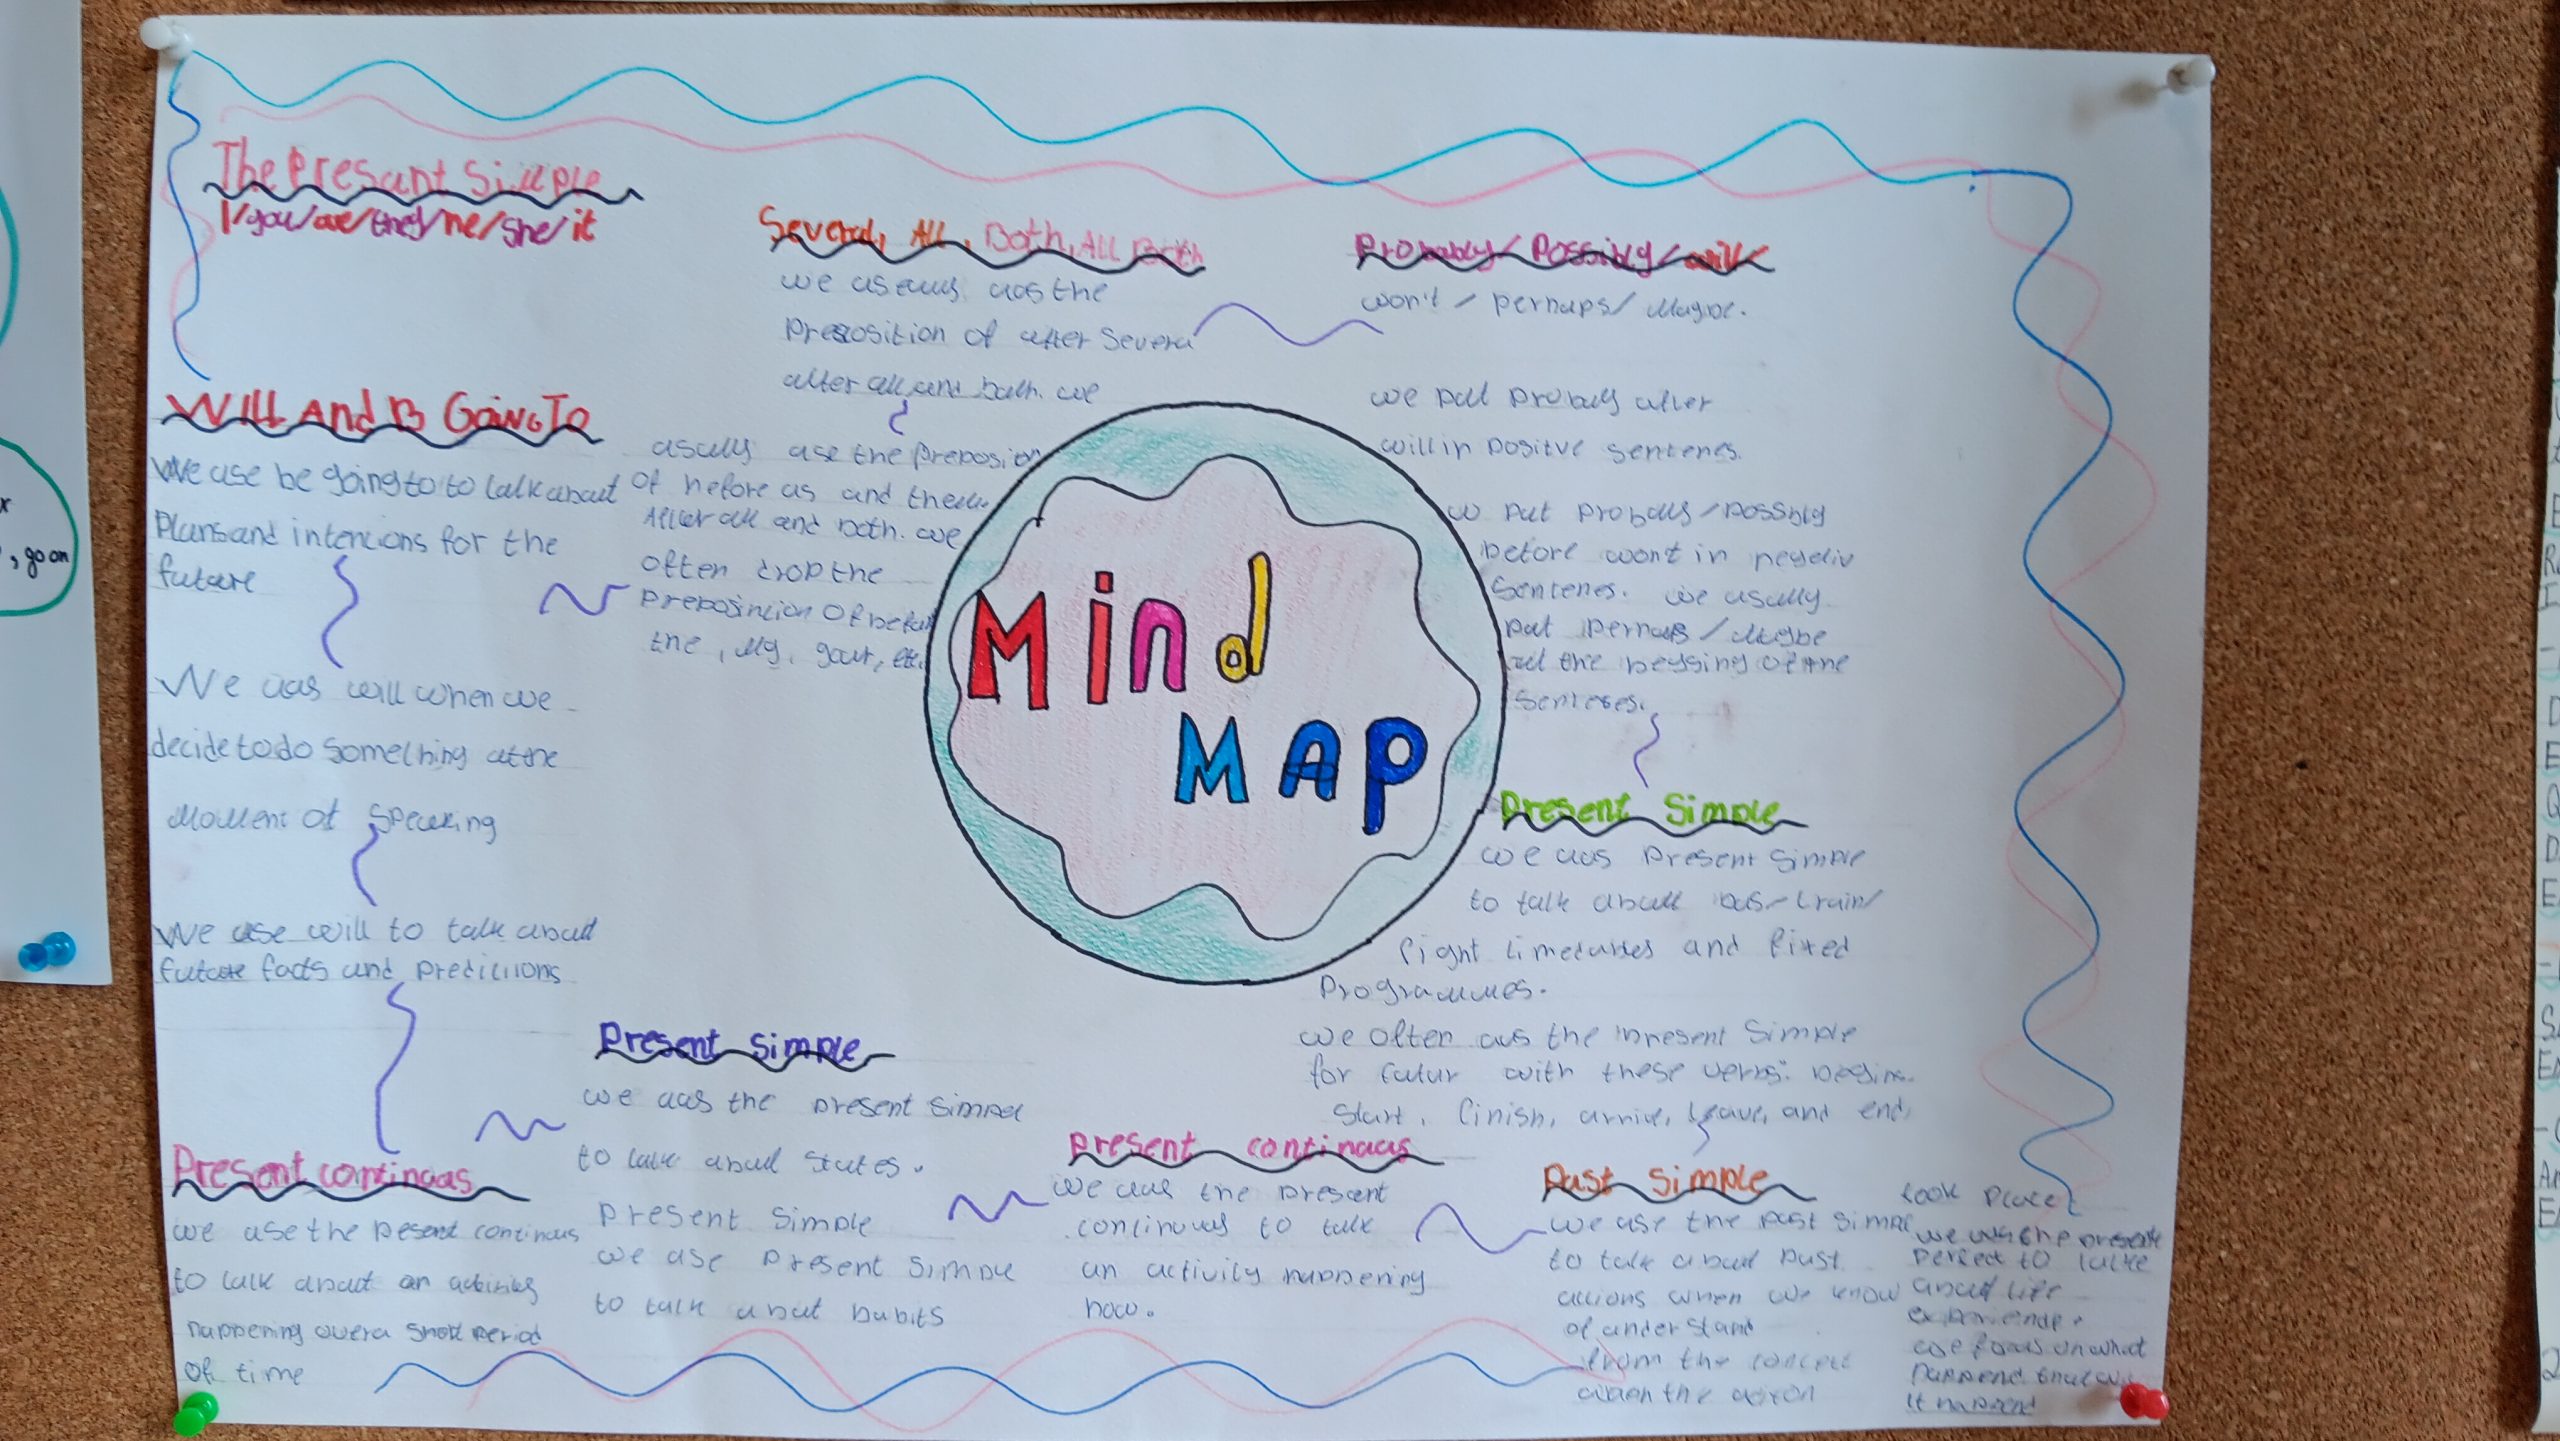 The Presant Simple
I/you/we/they/he/she/it
Several, All, Both, All Both
we usauly uas the
Preposition of after Severa
after all and both. we
usually use the preposion
of before us and them
After all and both. we
often drop the
preposincion of befor
the, My, your, etc.
Probably/Possibly/will
won't / perhaps/ Maybe.
we put probaly after
will in positve sentenes.
w put probaly/possbly
before wont in negativ
Sentenes. we usually
put pernaps/Maybe
at the beggsing of the
Senteses.
Will And B Going To
We use be going to to talk about
Plans and intencions for the
future
We uas will when we
decide to do something at the
Moment of Speaking
We use will to talk about
future facts and predictions
Mind
MAP
Present Simple
we uas Present Simple
to talk about bus-train/
flight and fixed
Programmes.
we often uas the present Simple
for futur with these verbs: begins.
Start, finish, arrive, leave, and end,
Present Simple
we uas the present simpel
to talk about states.
present simple
we use present simple
to talk about habits
Present continuas
we use the pesent continuus
to talk about an activities
happening over a short period
of time
Present continuas
we uas the present
continuus to talk
an activity happening
now.
Past Simple
we use the past simpl
to talk about past
actions when we know
of understand
from the context
when the action
took place
we uas the present
perfect to talke
about life
experiende.
we focus on what
happend
It happend
, go on